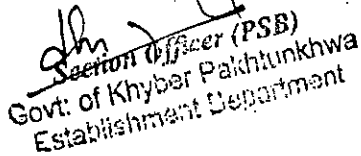 Section Officer (PSB)
Govt: of Khyber Pakhtunkhwa
Establishment Department